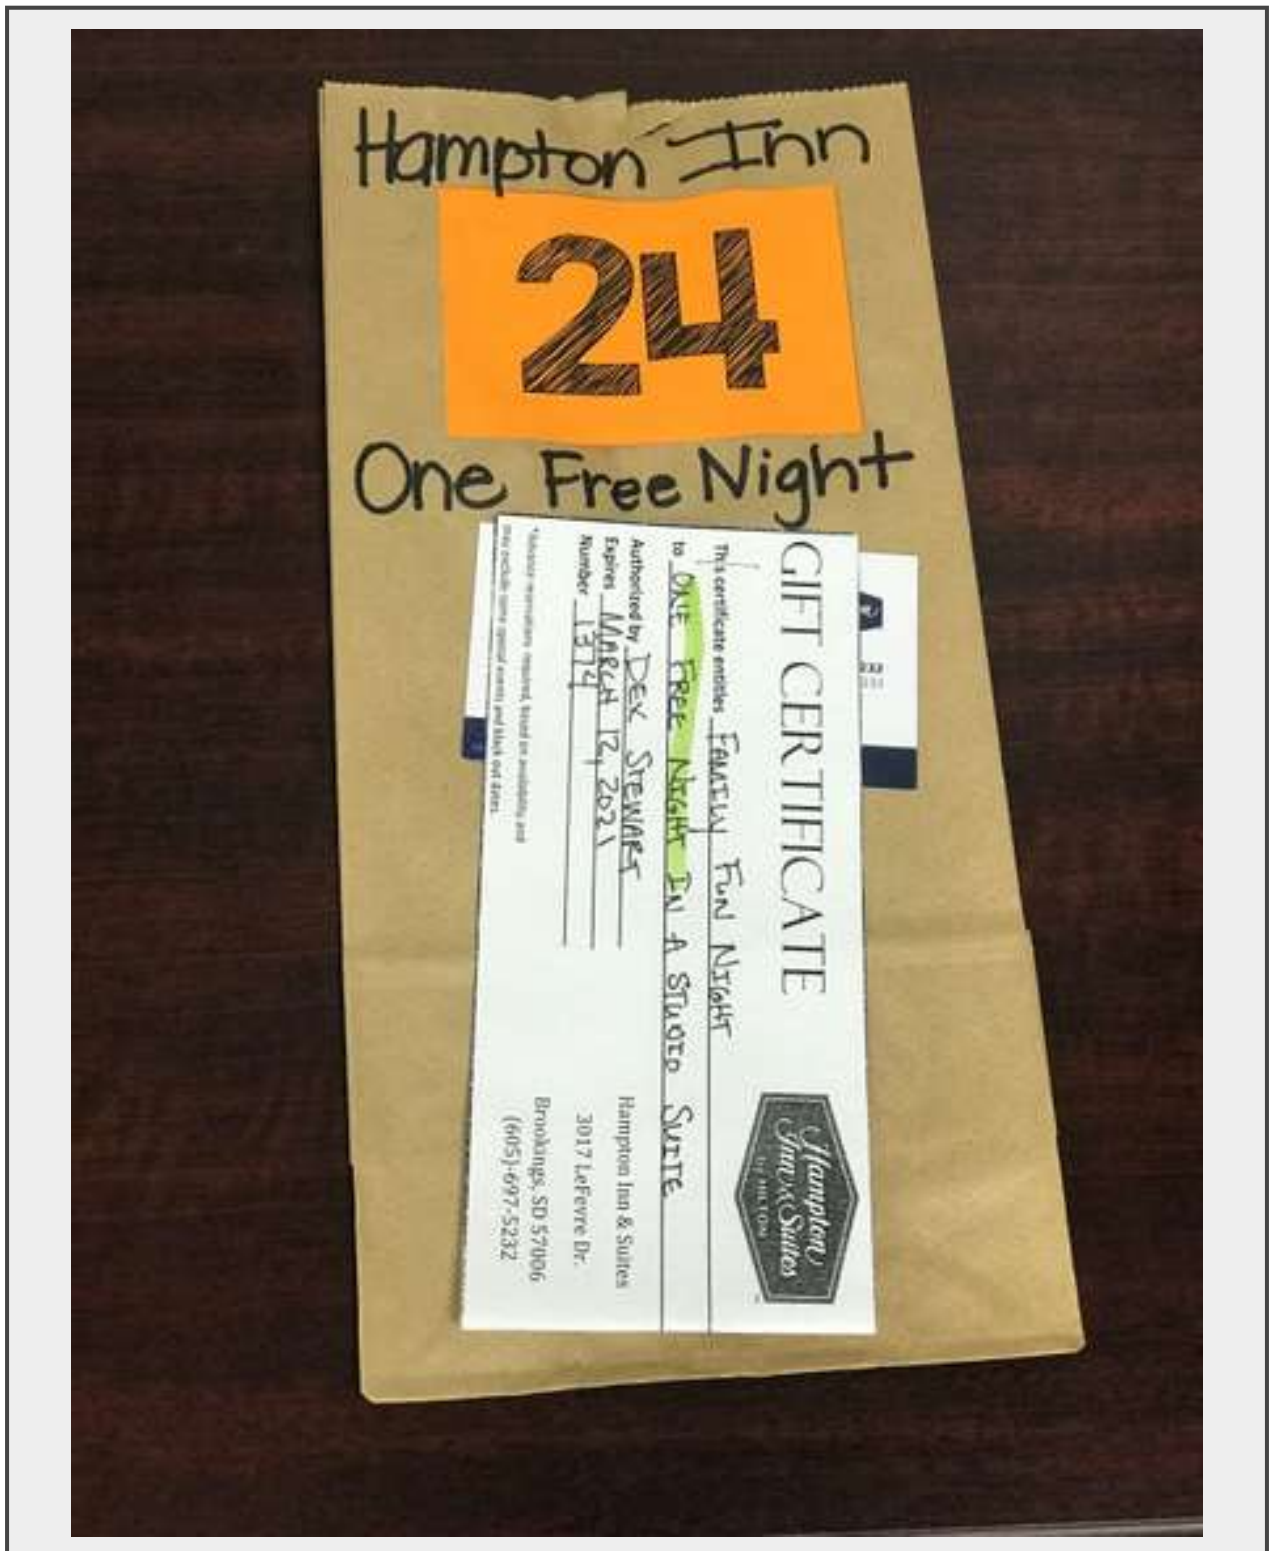 Hampton Inn
24
One Free Night
GIFT CERTIFICATE
This certificate entitles FAMILY FUN NIGHT
to ONE FREE NIGHT IN A STUDIO SUITE
Authorized by DEX STEWART
Expires MARCH 12, 2021
Number 1374
*Advance reservations required, based on availability and
may exclude some special events and black out dates.
Hampton
Inn & Suites
BY HILTON
Hampton Inn & Suites
3017 LeFevre Dr.
Brookings, SD 57006
(605)-697-5232